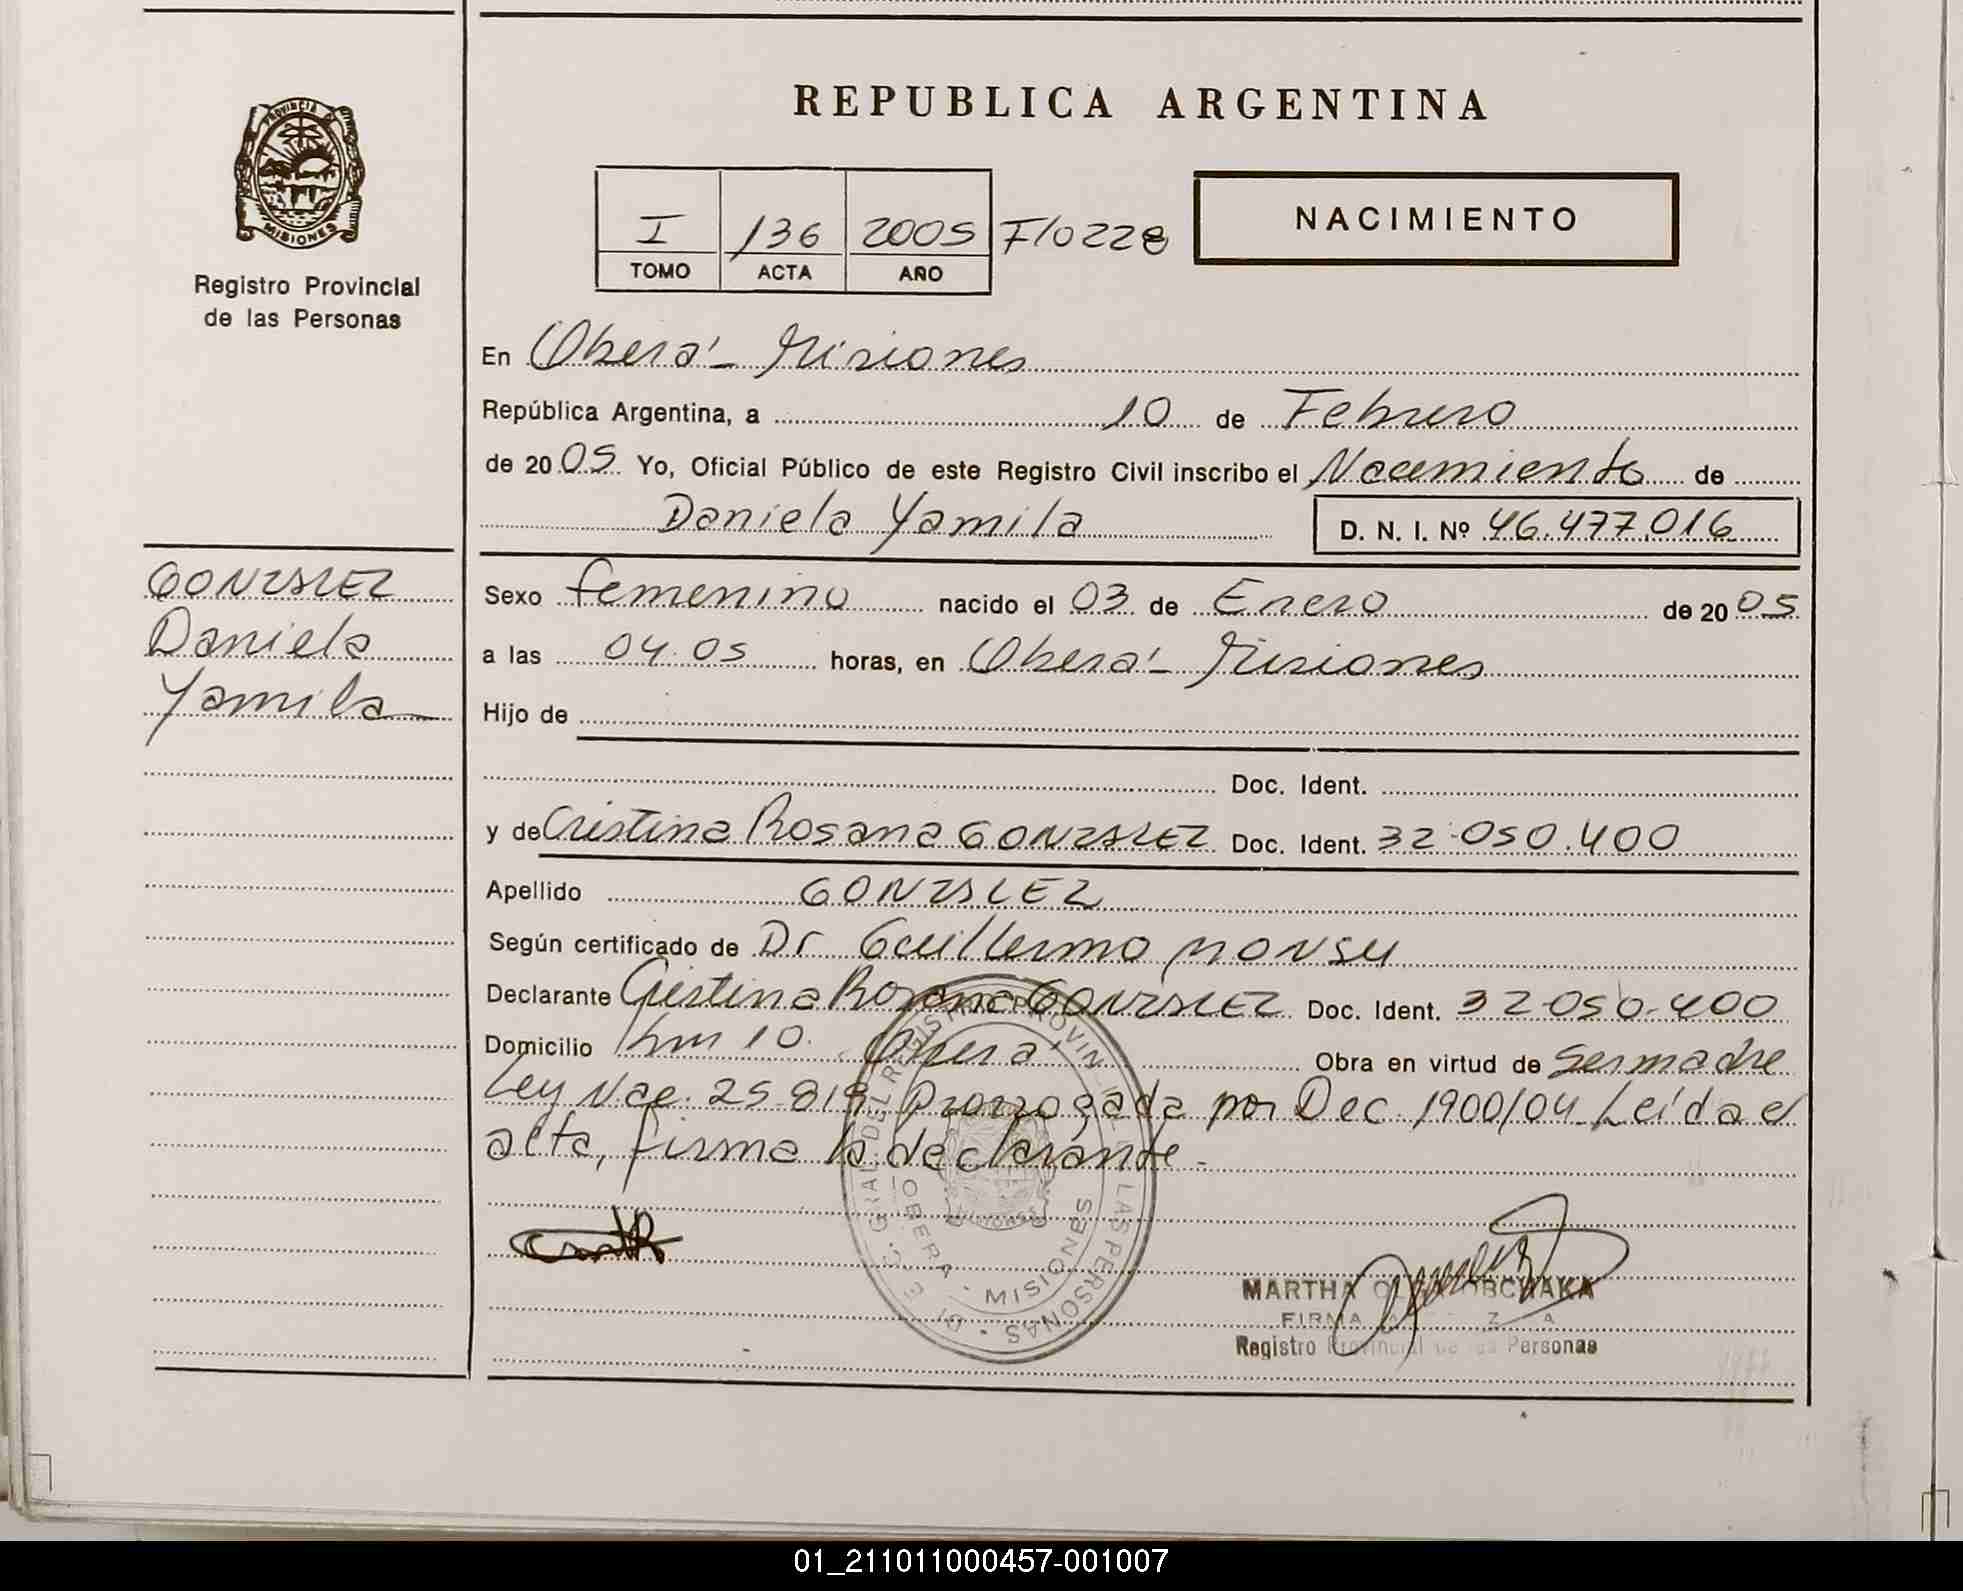 REPUBLICA ARGENTINA
PROVINCIA DE
MISIONES
Registro Provincial
de las Personas
I 136 2005 F/0228
TOMO ACTA AÑO
NACIMIENTO
En Oberá - Misiones
República Argentina, a 10 de Febrero
de 2005 Yo, Oficial Público de este Registro Civil inscribo el Nacimiento de
Daniela Yamila D. N. I. Nº 46.477.016
GONZALEZ
Daniela
Yamila
Sexo femenino nacido el 03 de Enero de 2005
a las 04.05 horas, en Oberá - Misiones
Hijo de
Doc. Ident.
y de Cristina Rosana GONZALEZ Doc. Ident. 32.050.400
Apellido GONZALEZ
Según certificado de Dr Guillermo MONSU
Declarante Cristina Rosana GONZALEZ Doc. Ident. 32.050.400
Domicilio Km 10. Oberá Obra en virtud de Ser madre
Ley Nac. 25.819 Prorrogada por Dec. 1900/04 Leída el
acta, firma la declarante.
OBERA - MISIONES
MARTHA
FIRMA
Registro Provincial de las Personas
01_211011000457-001007